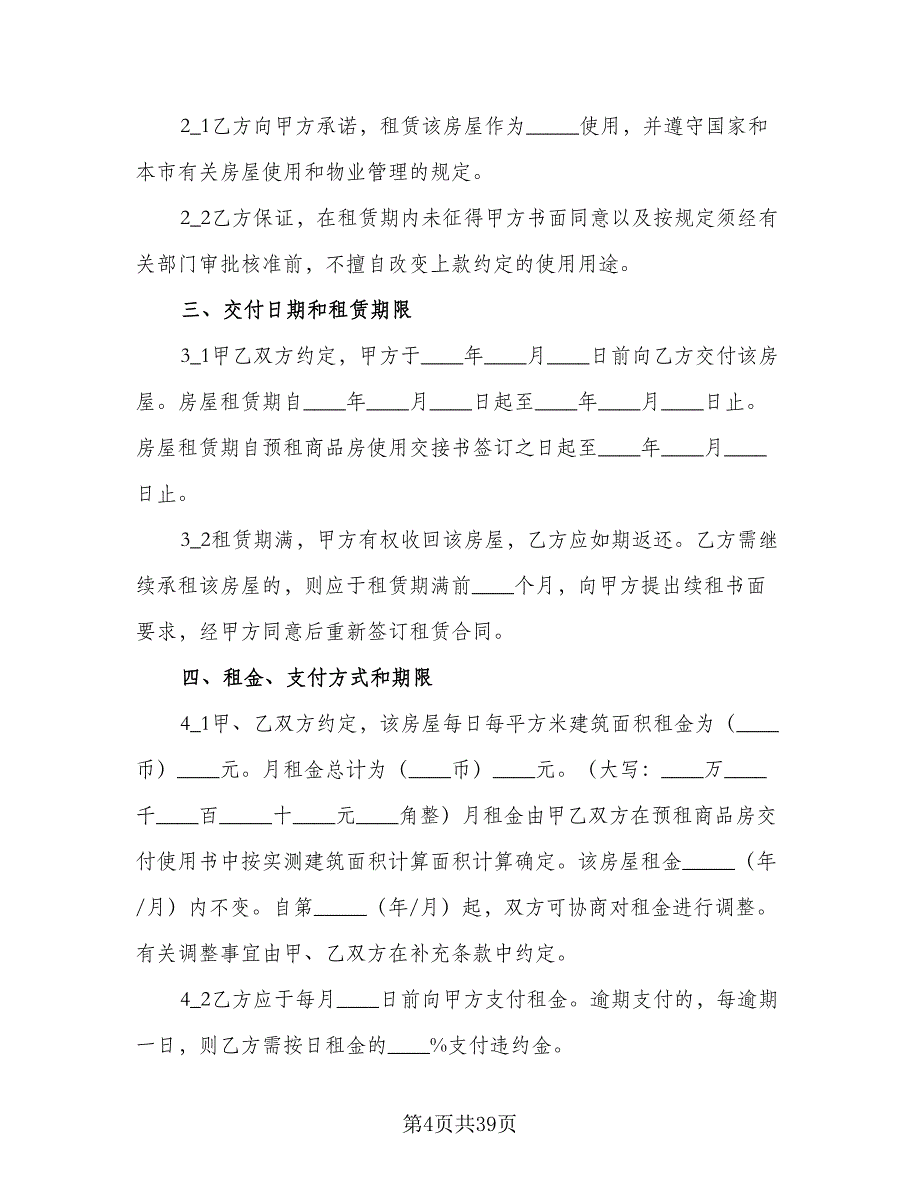 2_1乙方向甲方承诺，租赁该房屋作为_____使用，并遵守国家和
本市有关房屋使用和物业管理的规定。
2_2乙方保证，在租赁期内未征得甲方书面同意以及按规定须经有
关部门审批核准前，不擅自改变上款约定的使用用途。
三、交付日期和租赁期限
3_1甲乙双方约定，甲方于____年____月____日前向乙方交付该房
屋。房屋租赁期自____年____月____日起至____年____月____日止。
房屋租赁期自预租商品房使用交接书签订之日起至____年____月____
日止。
3_2租赁期满，甲方有权收回该房屋，乙方应如期返还。乙方需继
续承租该房屋的，则应于租赁期满前____个月，向甲方提出续租书面
要求，经甲方同意后重新签订租赁合同。
四、租金、支付方式和期限
4_1甲、乙双方约定，该房屋每日每平方米建筑面积租金为（____
币）____元。月租金总计为（____币）____元。（大写：____万____
千____百_____十____元____角整）月租金由甲乙双方在预租商品房交
付使用书中按实测建筑面积计算面积计算确定。该房屋租金_____（年
/月）内不变。自第_____（年/月）起，双方可协商对租金进行调整。
有关调整事宜由甲、乙双方在补充条款中约定。
4_2乙方应于每月____日前向甲方支付租金。逾期支付的，每逾期
一日，则乙方需按日租金的____%支付违约金。
第4页共39页